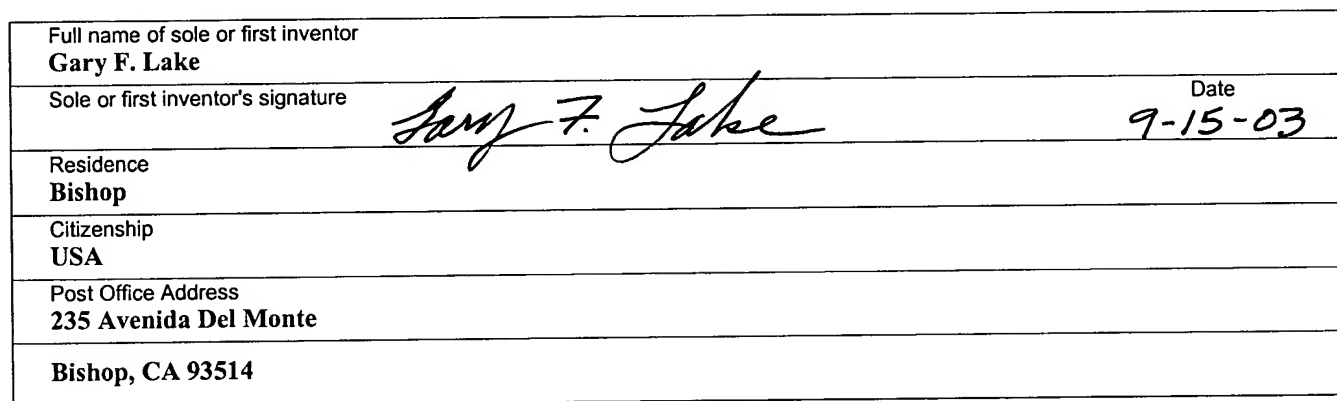 Full name of sole or first inventor
Gary F. Lake
Sole or first inventor's signature Gary F. Lake Date
9-15-03
Residence
Bishop
Citizenship
USA
Post Office Address
235 Avenida Del Monte
Bishop, CA 93514